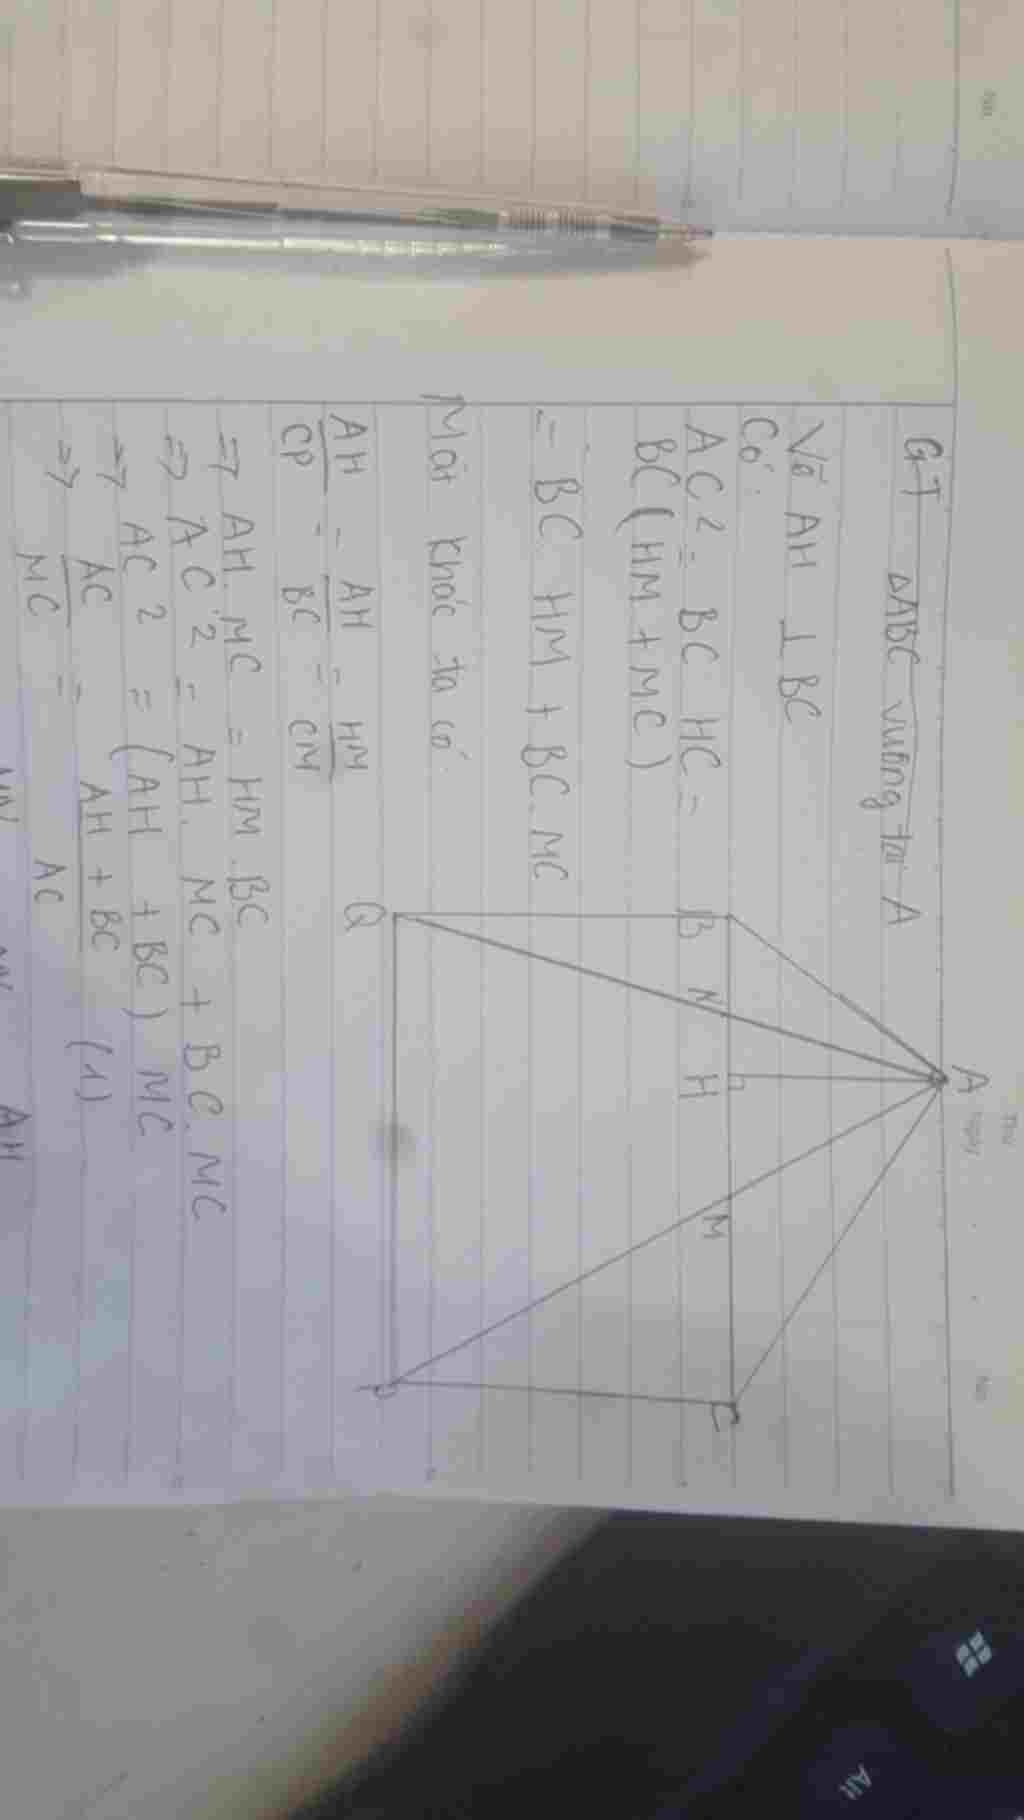 GT ΔABC vuông tại A
Vẽ AH ⊥ BC
Có:
AC² = BC HC =
BC (HM + MC)
= BC. HM + BC.MC
Mặt khác ta có
AH/CP = AH/BC = HM/CM
⇒ AH. MC = HM. BC
⇒ AC² = AH. MC + BC. MC
⇒ AC² = (AH + BC) MC
⇒ AC/MC = AH + BC/AC (1)
A
B N H M C
Q P
AH
Thứ
Ngày
No
Alt